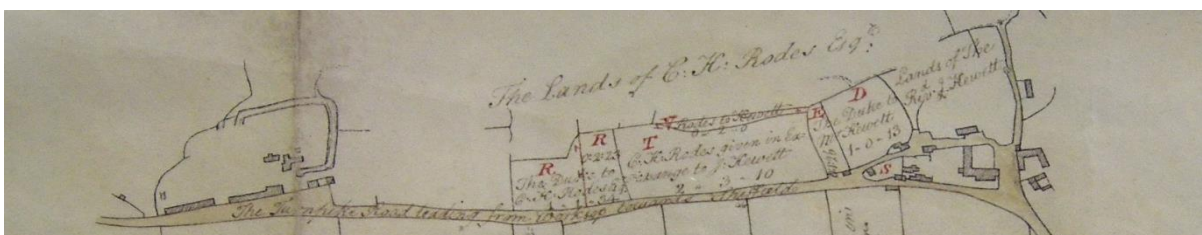 The Lands of C: H: Rodes Esqr.
Lands of The
Revd. J. Hewett
D
E
N
Rodes to Hewett
0 - 2 - 0
The Duke to
Hewett
1 - 0 - 13
R
R
T
C. H. Rodes given in Ex-
change to J. Hewett
2 - 3 - 10
The Duke to
C. H. Rodes
S
The Turnpike Road leading from Worksop towards Sheffield